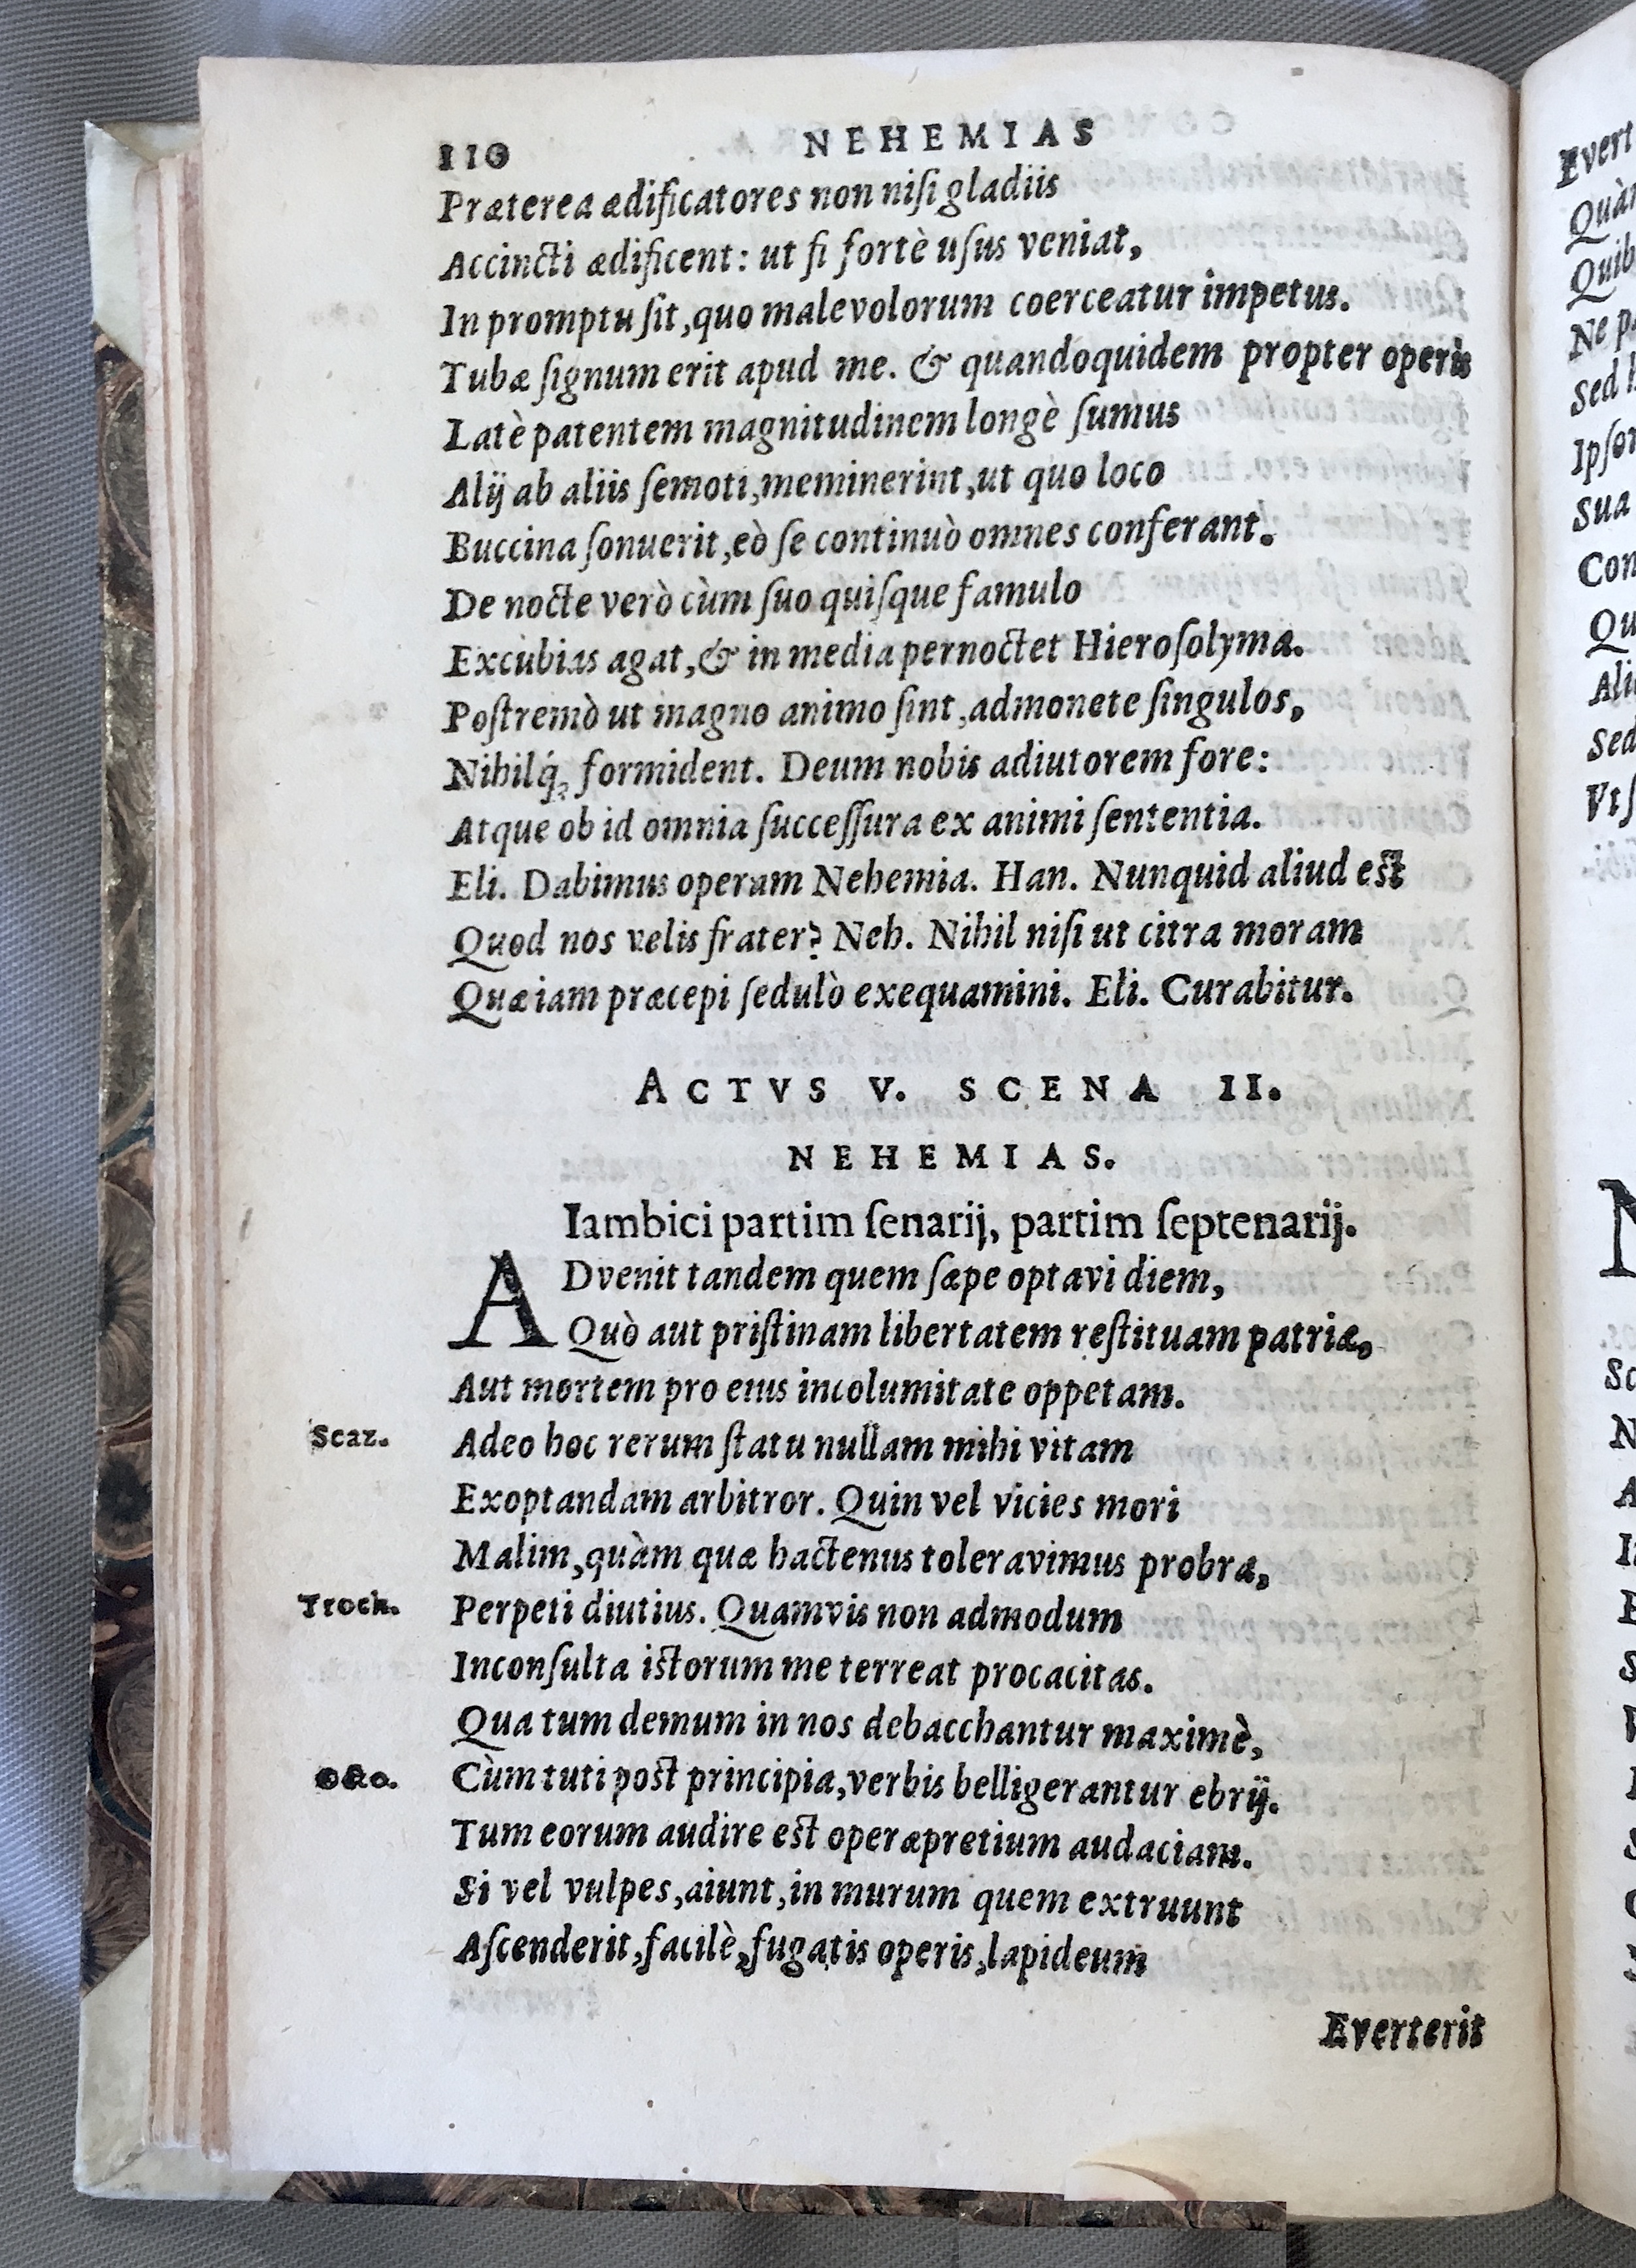 110 NEHEMIAS
Præterea ædificatores non niſi gladiis
Accincti ædificent: ut ſi fortè uſus veniat,
In promptu ſit, quo malevolorum coerceatur impetus.
Tubæ ſignum erit apud me. & quandoquidem propter operis
Latè patentem magnitudinem longè ſumus
Alij ab aliis ſemoti, meminerint, ut quo loco
Buccina ſonuerit, eò ſe continuò omnes conferant.
De nocte verò cùm ſuo quiſque famulo
Excubias agat, & in media pernoctet Hieroſolyma.
Poſtremò ut magno animo ſint, admonete ſingulos,
Nihilq́ꝫ formident. Deum nobis adiutorem fore:
Atque ob id omnia ſucceſſura ex animi ſententia.
Eli. Dabimus operam Nehemia. Han. Nunquid aliud est
Quod nos velis frater? Neh. Nihil niſi ut citra moram
Quæ iam præcepi ſedulò exequamini. Eli. Curabitur.
ACTVS V. SCENA II.
NEHEMIAS.
Iambici partim ſenarij, partim ſeptenarij.
ADvenit tandem quem ſæpe optavi diem,
Quò aut priſtinam libertatem reſtituam patriæ,
Aut mortem pro eius incolumitate oppetam.
Scaz. Adeo hoc rerum ſtatu nullam mihi vitam
Exoptandam arbitror. Quin vel vicies mori
Malim, quàm quæ hactenus toleravimus probra,
Troch. Perpeti diutius. Quamvis non admodum
Inconſulta istorum me terreat procacitas.
Qua tum demum in nos debacchantur maximè,
Cùm tuti post principia, verbis belligerantur ebrij.
Tum eorum audire est operæpretium audaciam.
Si vel vulpes, aiunt, in murum quem extruunt
Aſcenderit, facilè, fugatis operis, lapideum
Everterit
Evert
Quàn
Quib
Ne p
Sed h
Ipſor
Sua
Con
Qu
Ali
Sed
Vtſ